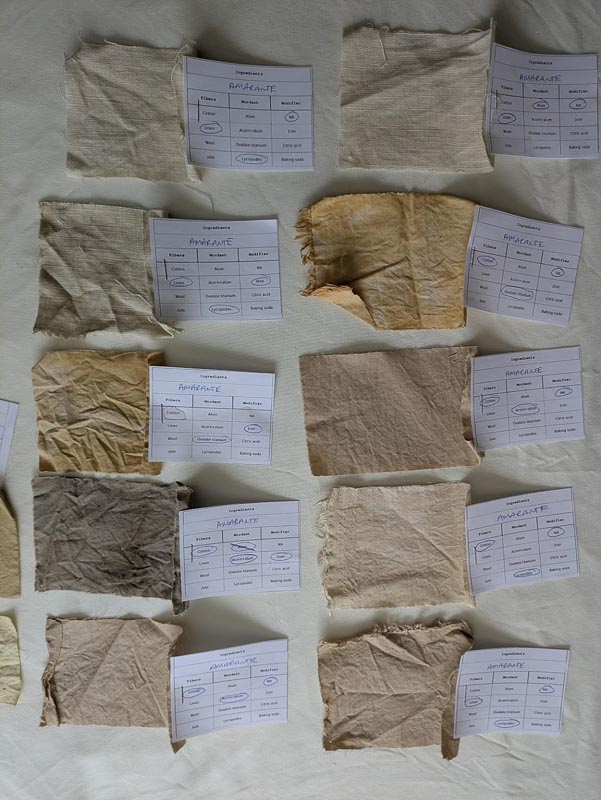 Ingredients
AMARANTE
Fibers Mordant Modifier
Cotton Alum NA
Linen Acorn+alum Iron
Wool Oxalate titanium Citric acid
Jute Lycopodes Baking soda
Ingredients
AMARANTE
Fibers Mordant Modifier
Cotton Alum NA
Linen Acorn+alum Iron
Wool Oxalate titanium Citric acid
Jute Lycopodes Baking soda
Ingredients
AMARANTE
Fibers Mordant Modifier
Cotton Alum NA
Linen Acorn+alum Iron
Wool Oxalate titanium Citric acid
Jute Lycopodes Baking soda
Ingredients
AMARANTE
Fibers Mordant Modifier
Cotton Alum NA
Linen Acorn+alum Iron
Wool Oxalate titanium Citric acid
Jute Lycopodes Baking soda
Ingredients
AMARANTE
Fibers Mordant Modifier
Cotton Alum NA
Linen Acorn+alum Iron
Wool Oxalate titanium Citric acid
Jute Lycopodes Baking soda
Ingredients
AMARANTE
Fibers Mordant Modifier
Cotton Alum NA
Linen Acorn+alum Iron
Wool Oxalate titanium Citric acid
Jute Lycopodes Baking soda
Ingredients
AMARANTE
Fibers Mordant Modifier
Cotton NA
Linen Acorn+alum Iron
Wool Oxalate titanium Citric acid
Jute Lycopodes Baking soda
Ingredients
AMARANTE
Fibers Mordant Modifier
Cotton Alum NA
Linen Acorn+alum Iron
Wool Oxalate titanium Citric acid
Jute Lycopodes Baking soda
Ingredients
AMARANTE
Fibers Mordant Modifier
Cotton Alum NA
Linen Acorn+alum Iron
Wool Oxalate titanium Citric acid
Jute Lycopodes Baking soda
Ingredients
AMARANTE
Fibers Mordant Modifier
Cotton Alum NA
Linen Acorn+alum Iron
Wool Oxalate titanium Citric acid
Jute Lycopodes Baking soda